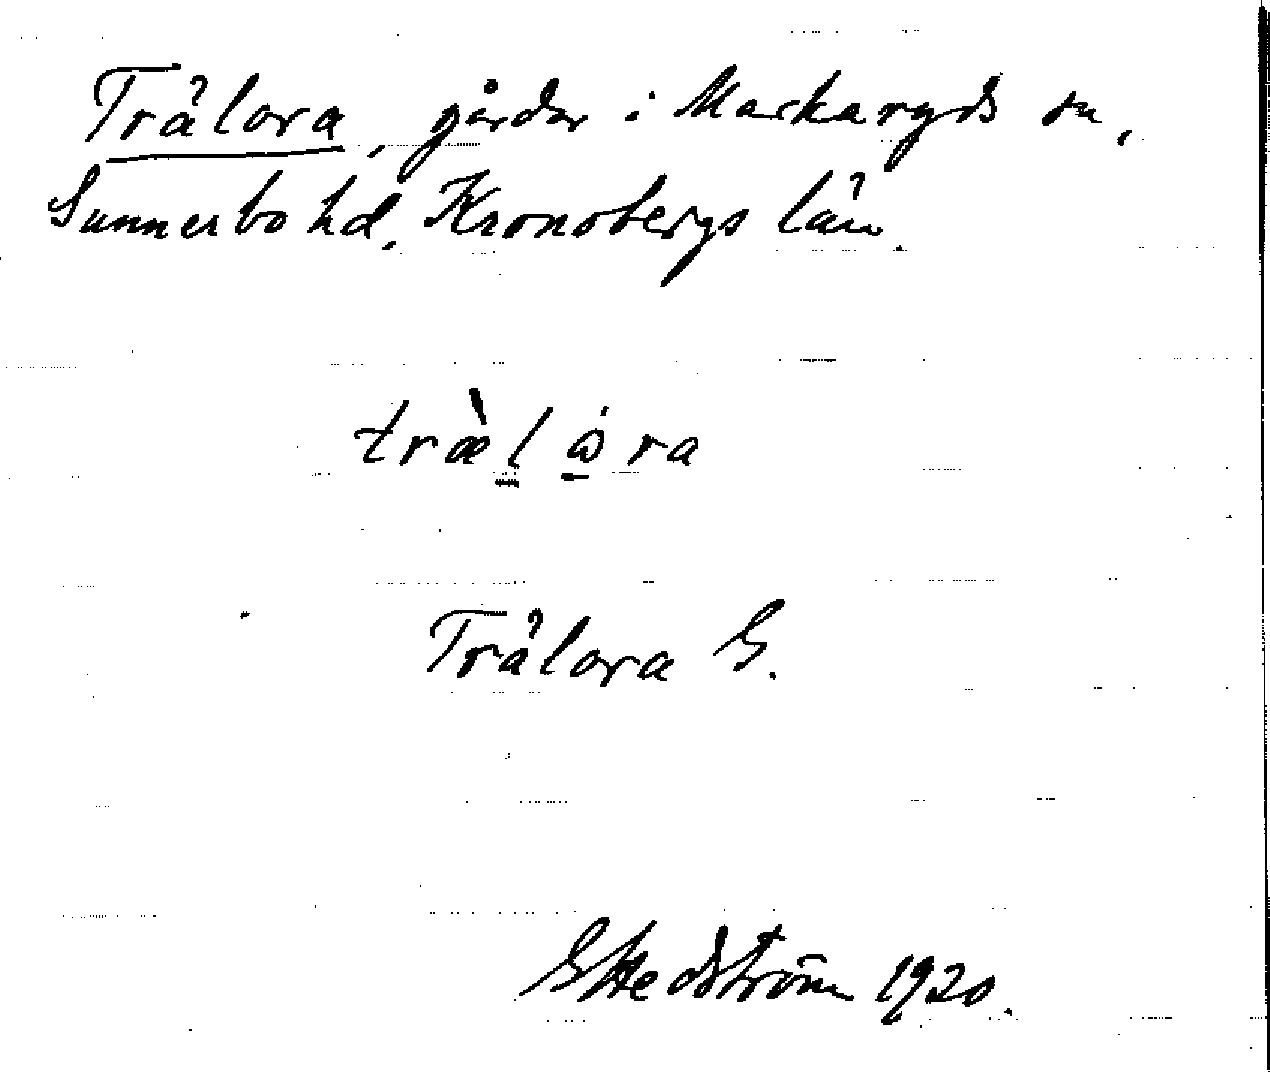 Trålora, gårdar i Markaryds sn,
Sunnerbo hd, Kronobergs län.
træ̀l ω̇ra
Trålora G.
G Hedström 1920.